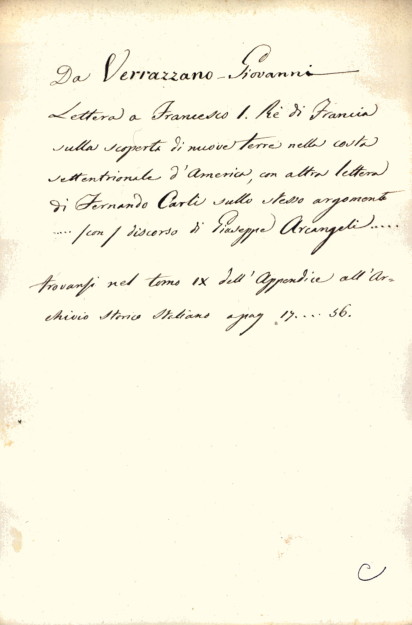 Da Verrazzano - Giovanni
Lettera a Francesco I. Rè di Francia
sulla scoperta di nuove terre nella costa
settentrionale d'America, con altra lettera
di Fernando Carli sullo stesso argomento
..... (con) discorso di Giuseppe Arcangeli.....
trovansi nel tomo IX dell'Appendice all'Ar=
chivio Storico Italiano a pag. 17.... 56.
C